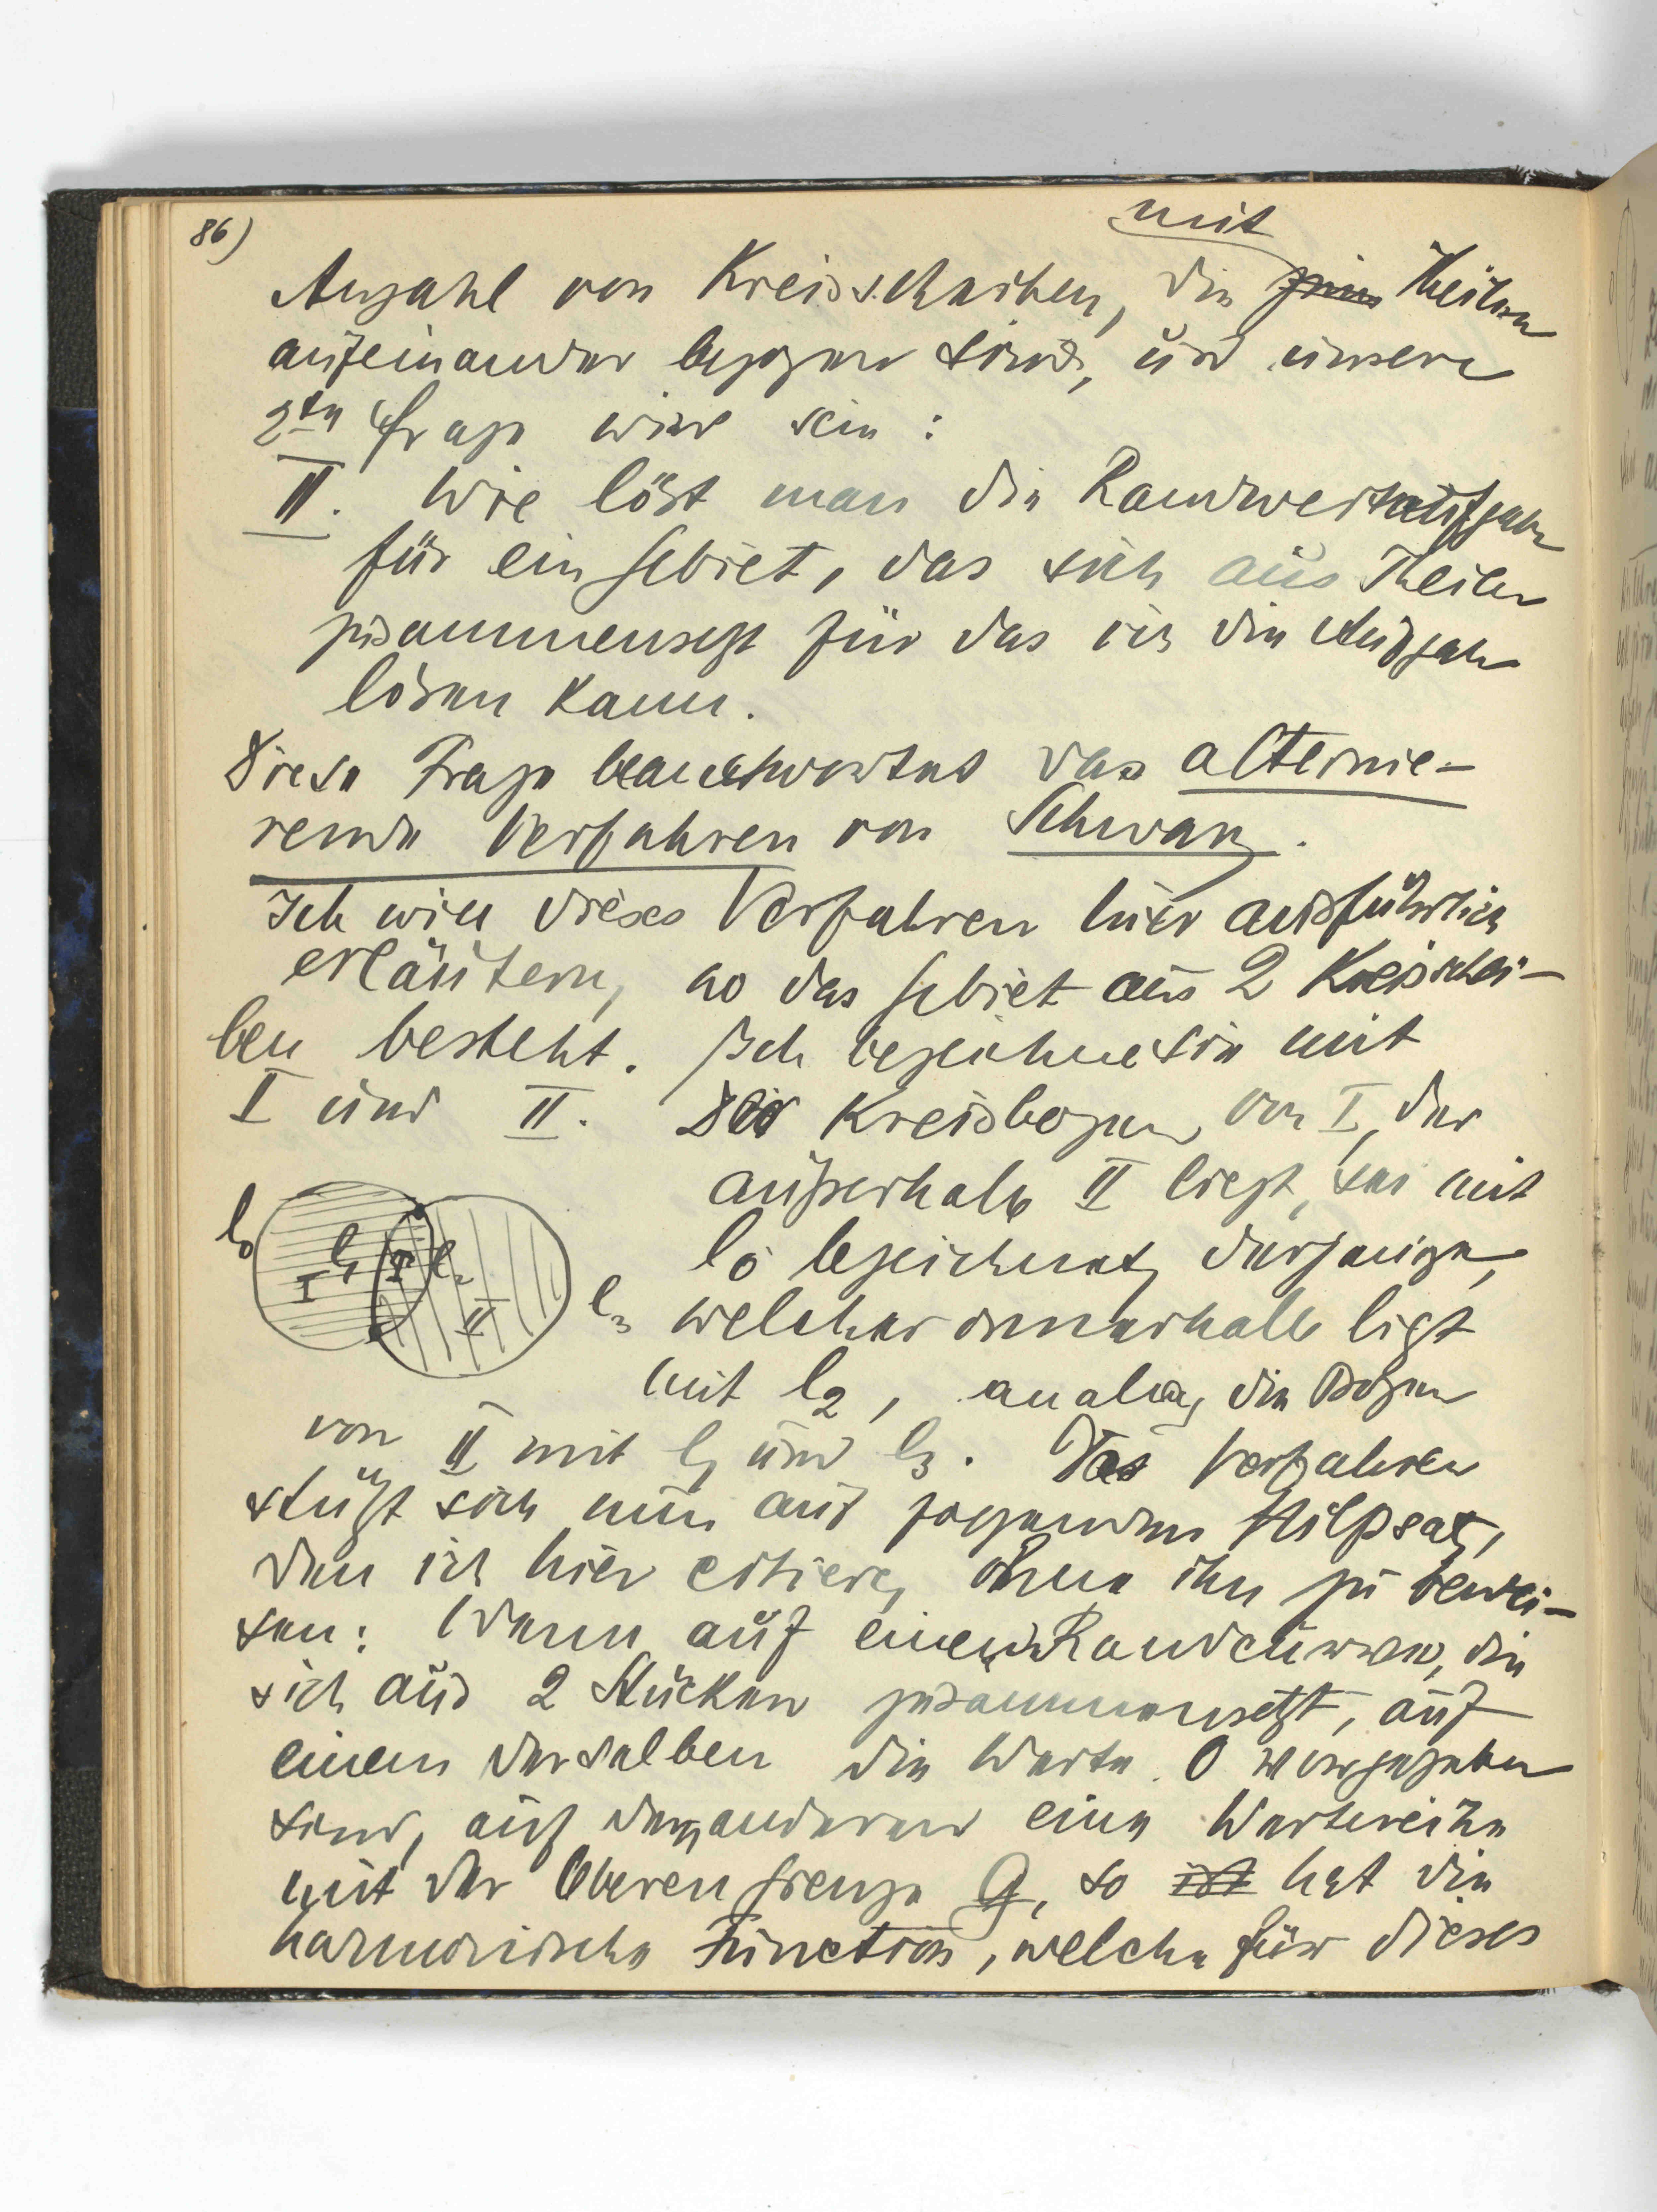 86)
mit
Anzahl von Kreisscheiben, die Theilen
aufeinander bezogen sind, und unsere
2te Frage wird sein:
II. Wie löst man die Randwertaufgabe
für ein Gebiet, das sich aus Theilen
zusammensetzt für das ich die Aufgabe
lösen kann.
Diese Frage beantwortet das alternie-
rende Verfahren von Schwarz.
Ich will dieses Verfahren hier ausführlich
erläutern, wo das Gebiet aus 2 Kreisschei-
ben besteht. Ich bezeichne sie mit
I und II. Der Kreisbogen von I, der
außerhalb II liegt, sei mit
l0 bezeichnet, derjenige,
welcher innerhalb ligt
mit l2, analog die Bogen
von II mit l1 und l3. Das Verfahren
stützt sich nun auf folgenden Hilfssatz,
den ich hier citiere, ohne ihn zu bewei-
sen: Wenn auf einer Randcurve, die
sich aus 2 Stücken zusammensetzt, auf
einem derselben die Werte 0 vorgegeben
sind, auf dem anderen eine Wertreihe
mit der oberen Grenze G, so ist hat die
harmonische Function, welche für dieses
l0
l1
I
l2
II
l3